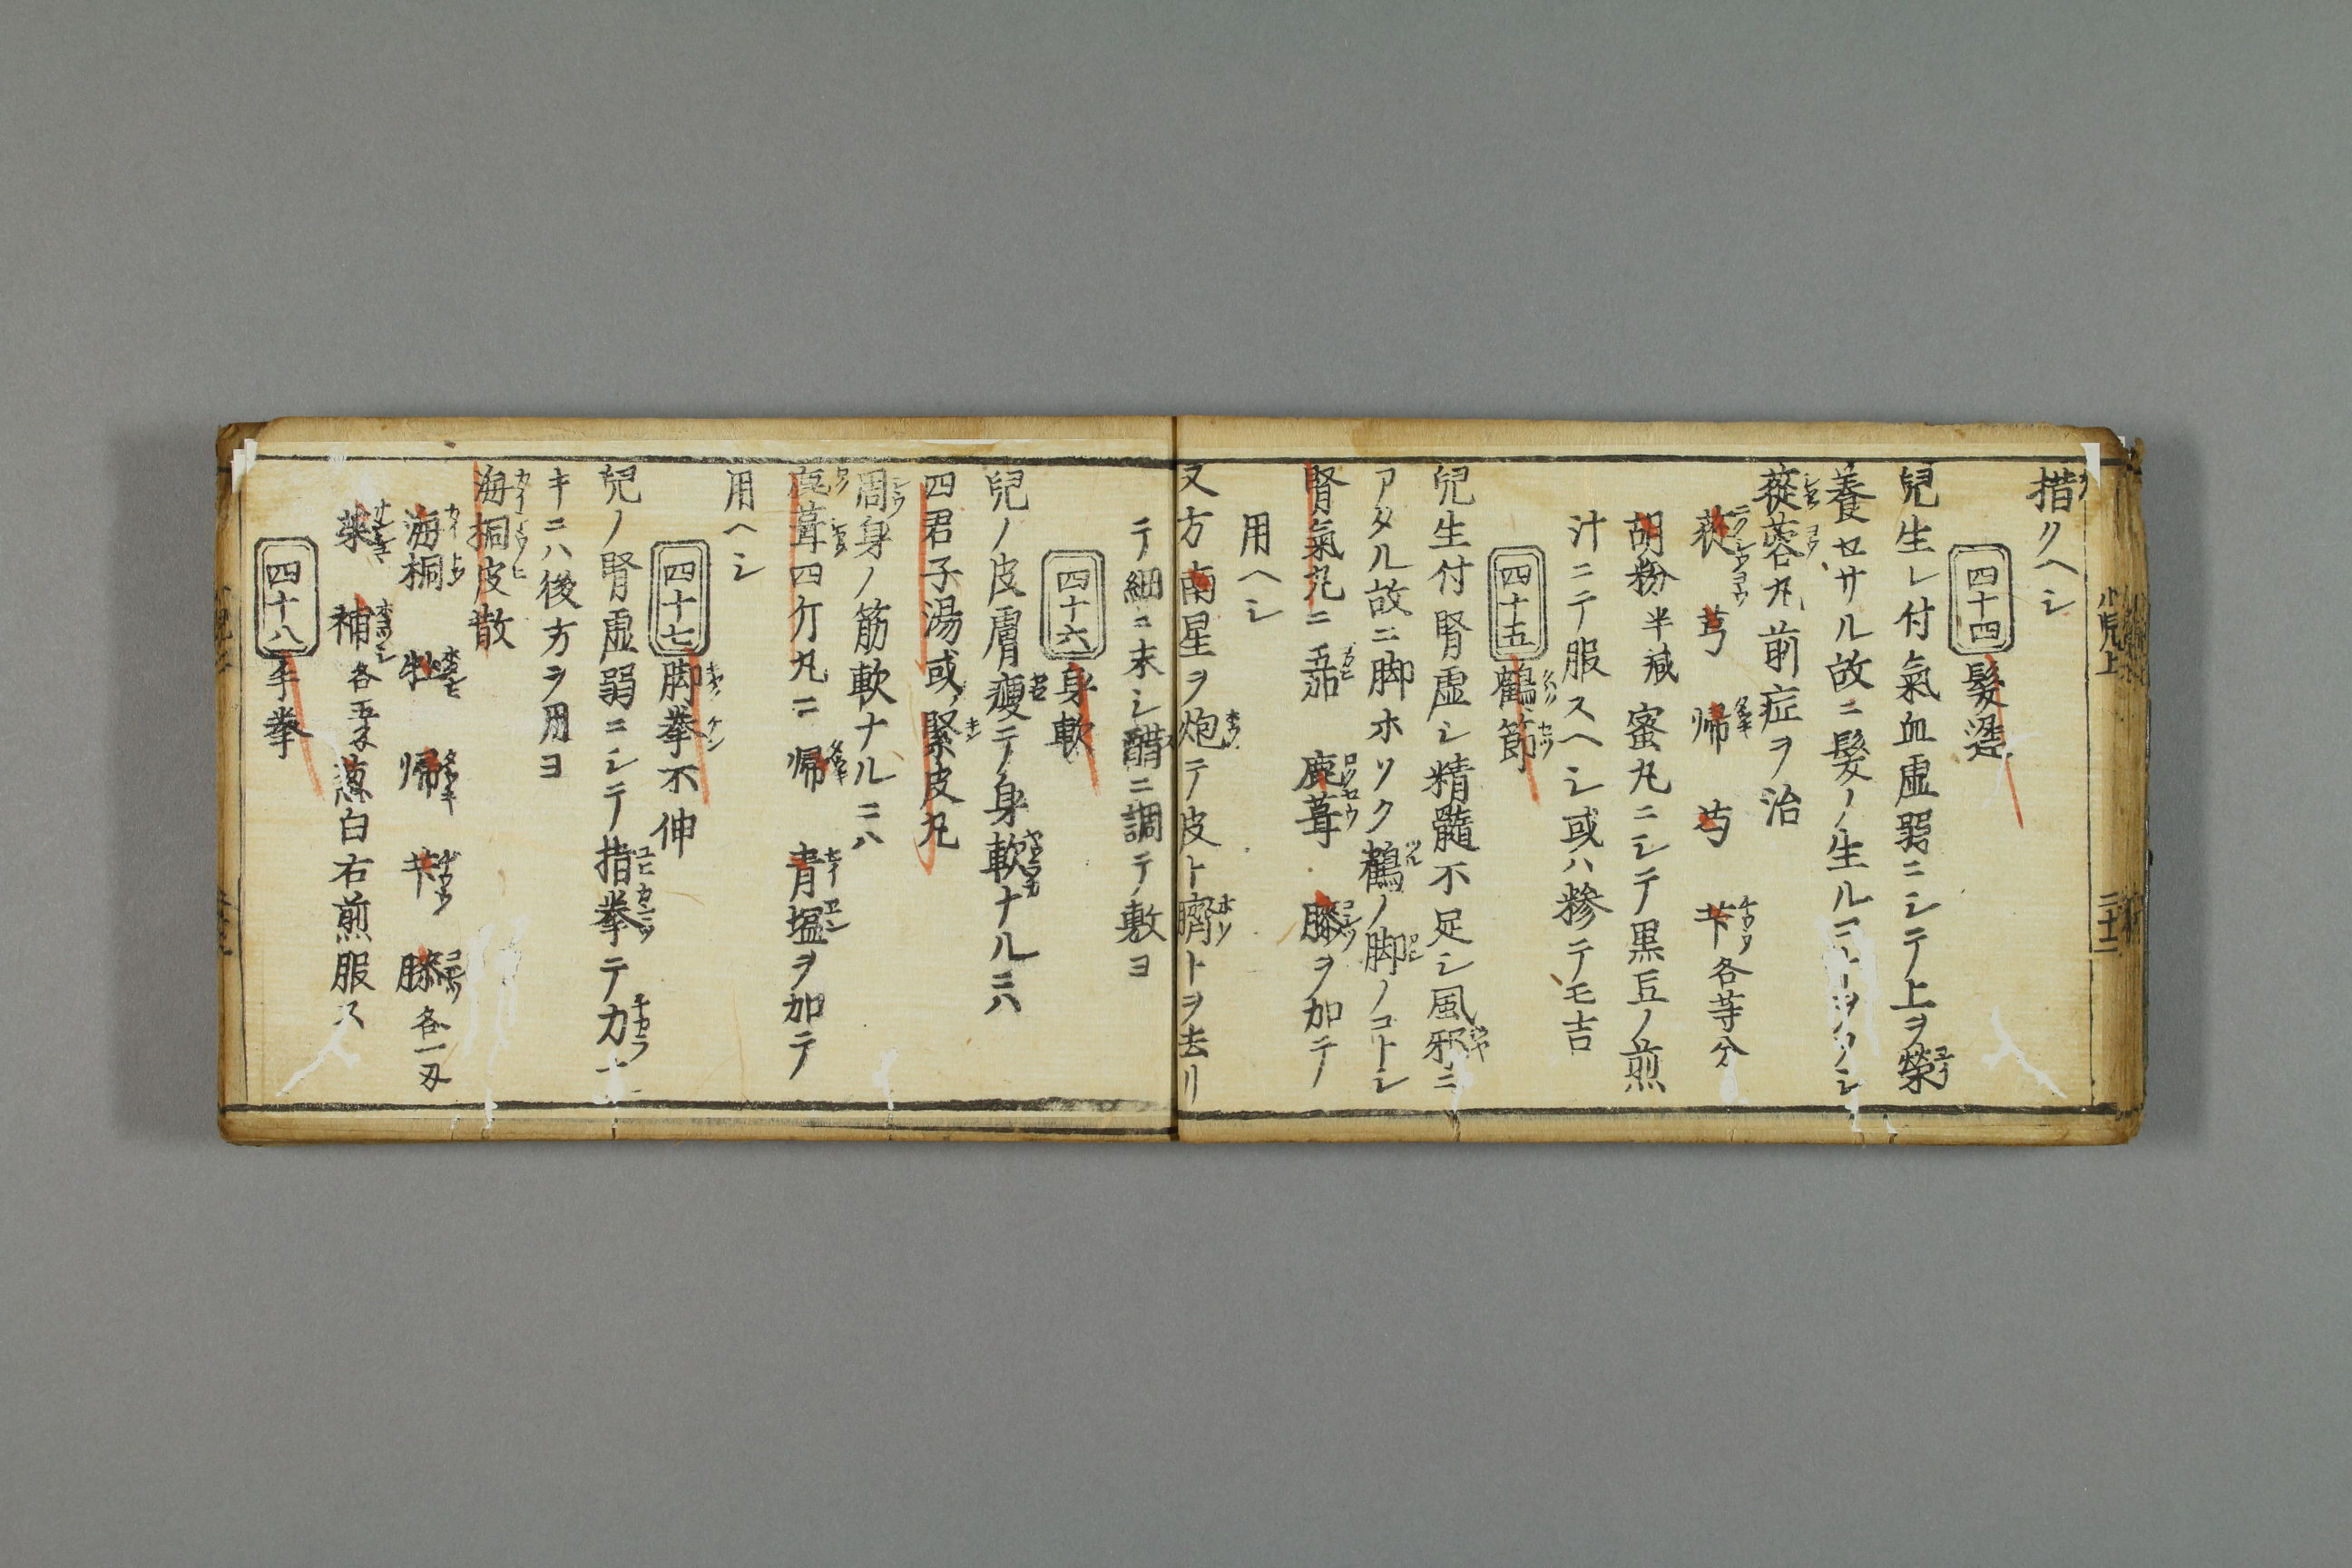 措クヘシ
四十四 髮遲
兒生レ付氣血虚弱ニシテ上ヲ榮
養セサル故ニ髮ノ生ルヿヲソシ
蓯蓉丸 前症ヲ治
蓯 芎 帰 芍 芐 各等分
胡粉半減 蜜丸ニシテ黒豆ノ煎
汁ニテ服スヘシ或ハ糝テモ吉
四十五 鶴節
兒生付腎虚シ精髓不足シ風邪ニ
アタル故ニ脚ホソク鶴ノ脚ノコトシ
腎氣丸ニ 五茄 鹿茸 膝ヲ加テ
用ヘシ
又方南星ヲ炮テ皮ト臍トヲ去リ
テ細ニ末シ醋ニ調テ敷ヨ
四十六 身軟
兒ノ皮膚瘦テ身軟ナルニハ
四君子湯或ハ緊皮丸
周身ノ筋軟ナルニハ
鹿茸四斤丸ニ 帰 青塩ヲ加テ
用ヘシ
四十七 脚拳不伸
兒ノ腎虚弱ニシテ指拳テ力ナ
キニハ後方ヲ用ヨ
海桐皮散
海桐 牡 帰 芐 膝 各一刄
茱 補 各五分 葱白右煎服ス
四十八 手拳
小児上
二十二